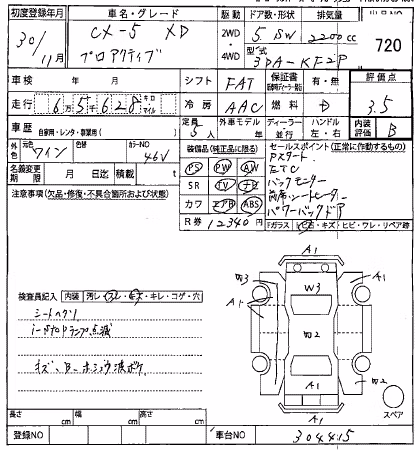 初度登録年月 車名・グレード 駆動 ドア数・形状 排気量 出品NO
30/11月 CX-5 XD 2WD・4WD 5 SW 2200cc 720
プロアクティブ 型式 3DA-KF2P
車検 年 月 シフト FAT 保証書 有・無 評価点
走行 6万5千628キロ マイル 冷房 AAC 燃料 D 3.5
車歴 自家用・レンタ・事業用( ) 定員 5人 外車モデル 年 ディーラー 並行 ハンドル 左・右 内装評価 B
外色 元色 ワイン 色替 カラーNO 46V
装備品(純正品に限る) セールスポイント(正常に作動するもの)
名義変更期限 月 日迄 積載 t
PS PW AW
SR TV ナビ
カワ エアB ABS
R券 12340円
Pスタート
ETC
バックモニター
前席シートヒーター
パワーバックドア
Fガラス ヒビ・ワレ・リペア跡
注意事項(欠品・修復・不具合箇所および状態)
検査員記入 内装 汚レ・スレ・キズ・キレ・コゲ・穴
シートヘタリ
ランプ点滅
キズ
A1
W3 W3 A1
A1
W2
A1 W2
A1
スペア
長さ cm 幅 cm 高さ cm
登録NO 車台NO 304415